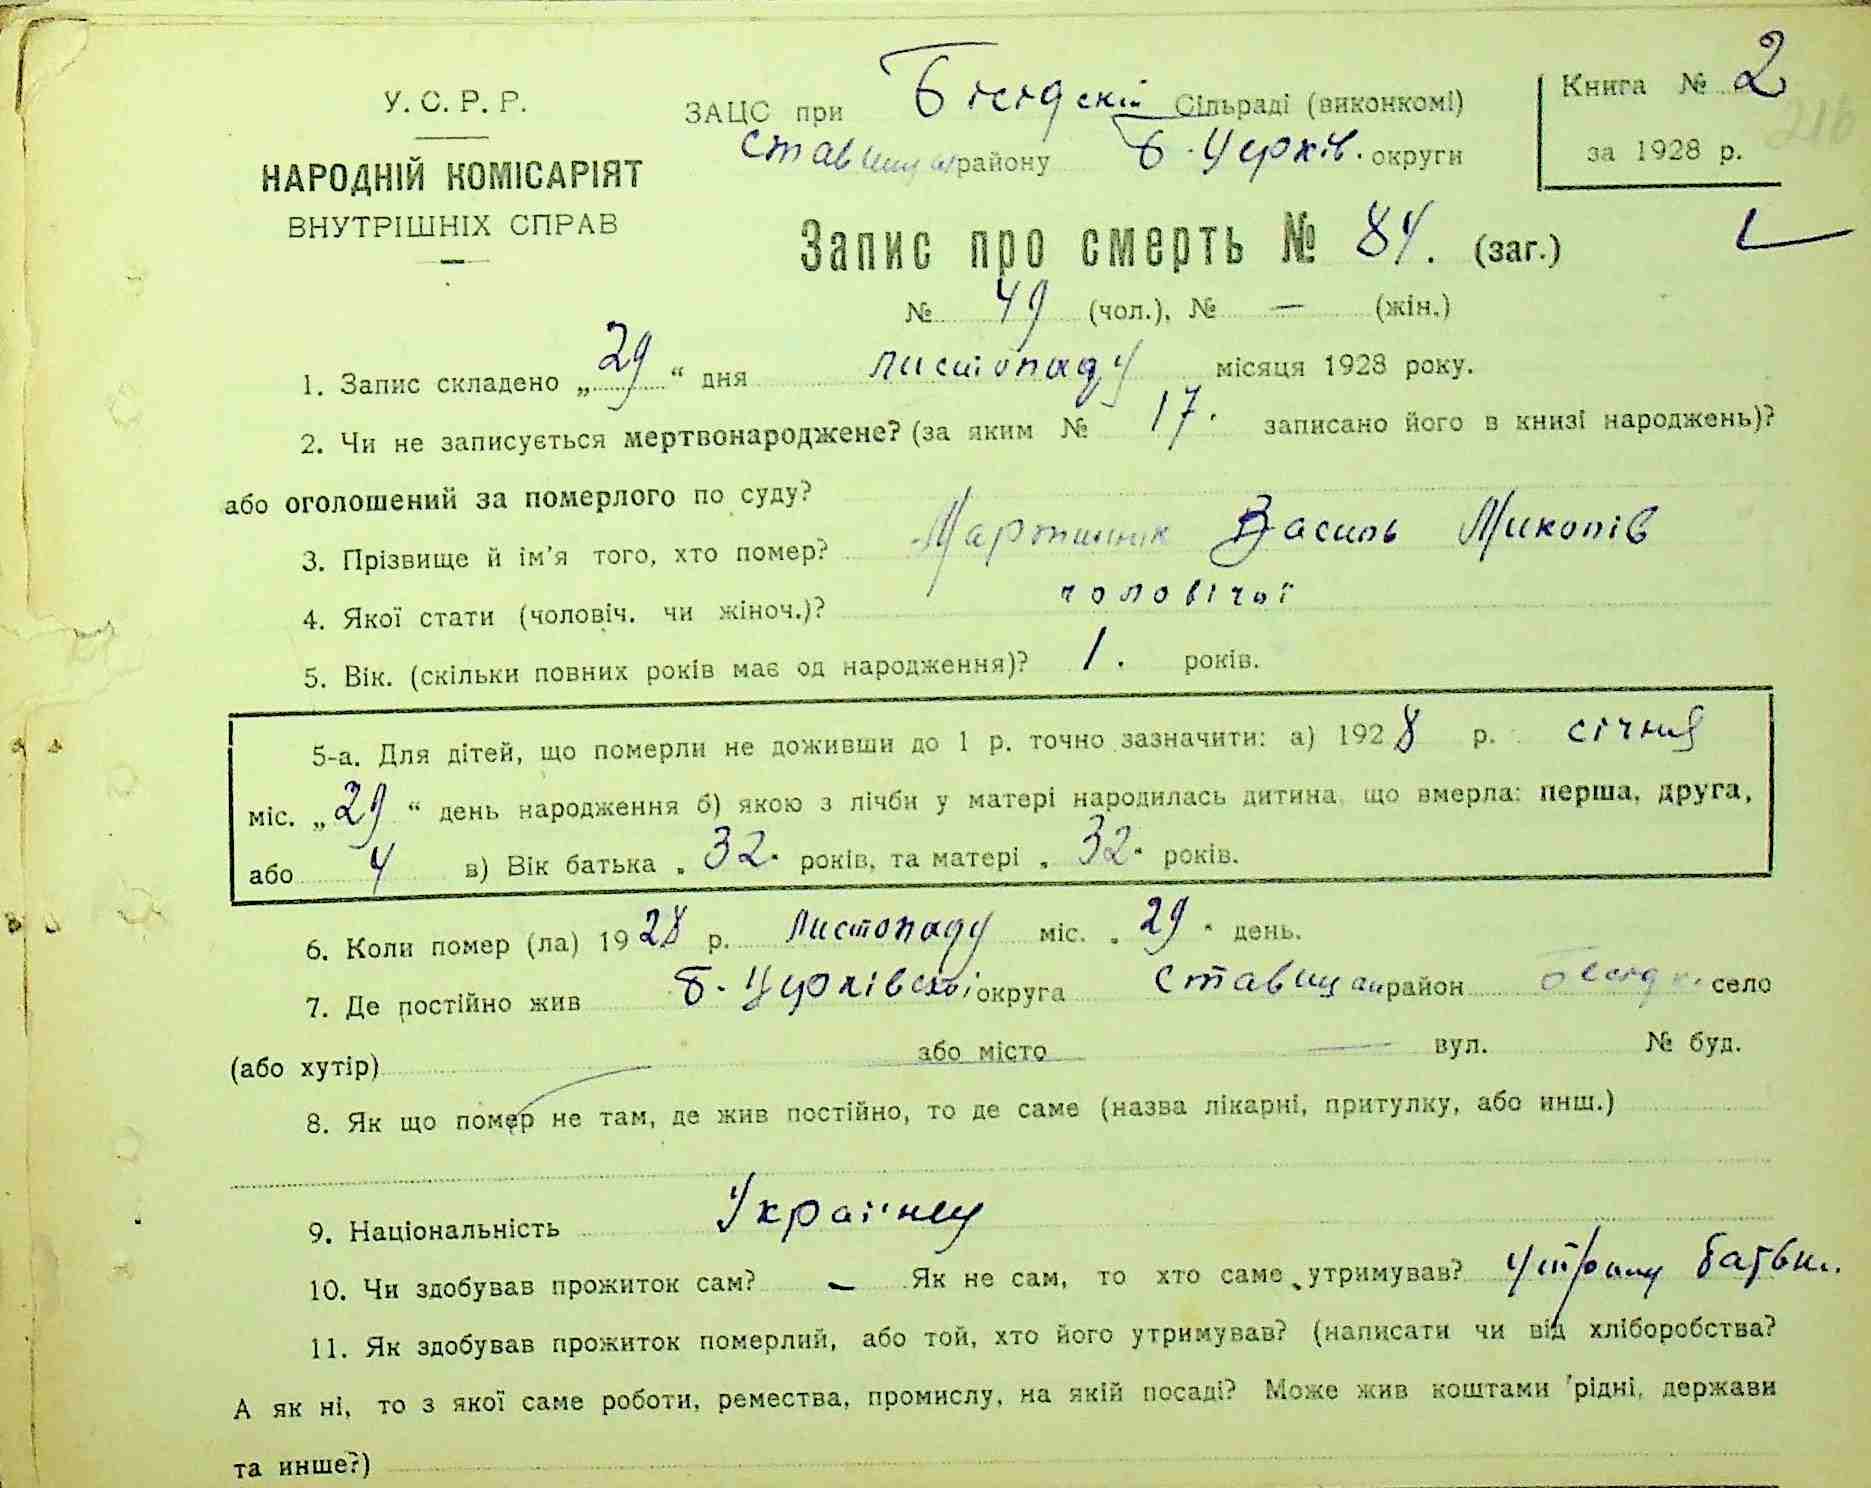 У. С. Р. Р.
НАРОДНІЙ КОМІСАРІЯТ
ВНУТРІШНІХ СПРАВ
ЗАЦС при Бесідскій Сільраді (виконкомі)
Ставищан району Б. Церків. округи
Книга № 2
за 1928 р.
Запис про смерть № 84. (заг.)
№ 49 (чол.), № — (жін.)
1. Запис складено „29“ дня листопаду місяця 1928 року.
2. Чи не записується мертвонароджене? (за яким № 17. записано його в книзі народжень)?
або оголошений за померлого по суду?
3. Прізвище й ім'я того, хто помер? Мартинюк Василь Миколів
4. Якої стати (чоловіч. чи жіноч.)? чоловічої
5. Вік. (скільки повних років має од народження)? 1. років.
5-а. Для дітей, що померли не доживши до 1 р. точно зазначити: а) 1928 р. січня
міс. „29“ день народження б) якою з лічби у матері народилась дитина, що вмерла: перша, друга,
або 4 в) Вік батька „32“ років, та матері „32“ років.
6. Коли помер (ла) 1928 р. листопаду міс. „29“ день.
7. Де постійно жив Б. Церківскої округа Ставищан район Бесідк. село
(або хутір) або місто — вул. № буд.
8. Як що помер не там, де жив постійно, то де саме (назва лікарні, притулку, або инш.)
9. Національність Українец
10. Чи здобував прожиток сам? — Як не сам, то хто саме утримував? батьки.
11. Як здобував прожиток померлий, або той, хто його утримував? (написати чи від хліборобства?
А як ні, то з якої саме роботи, ремества, промислу, на якій посаді? Може жив коштами рідні, держави
та инше?)